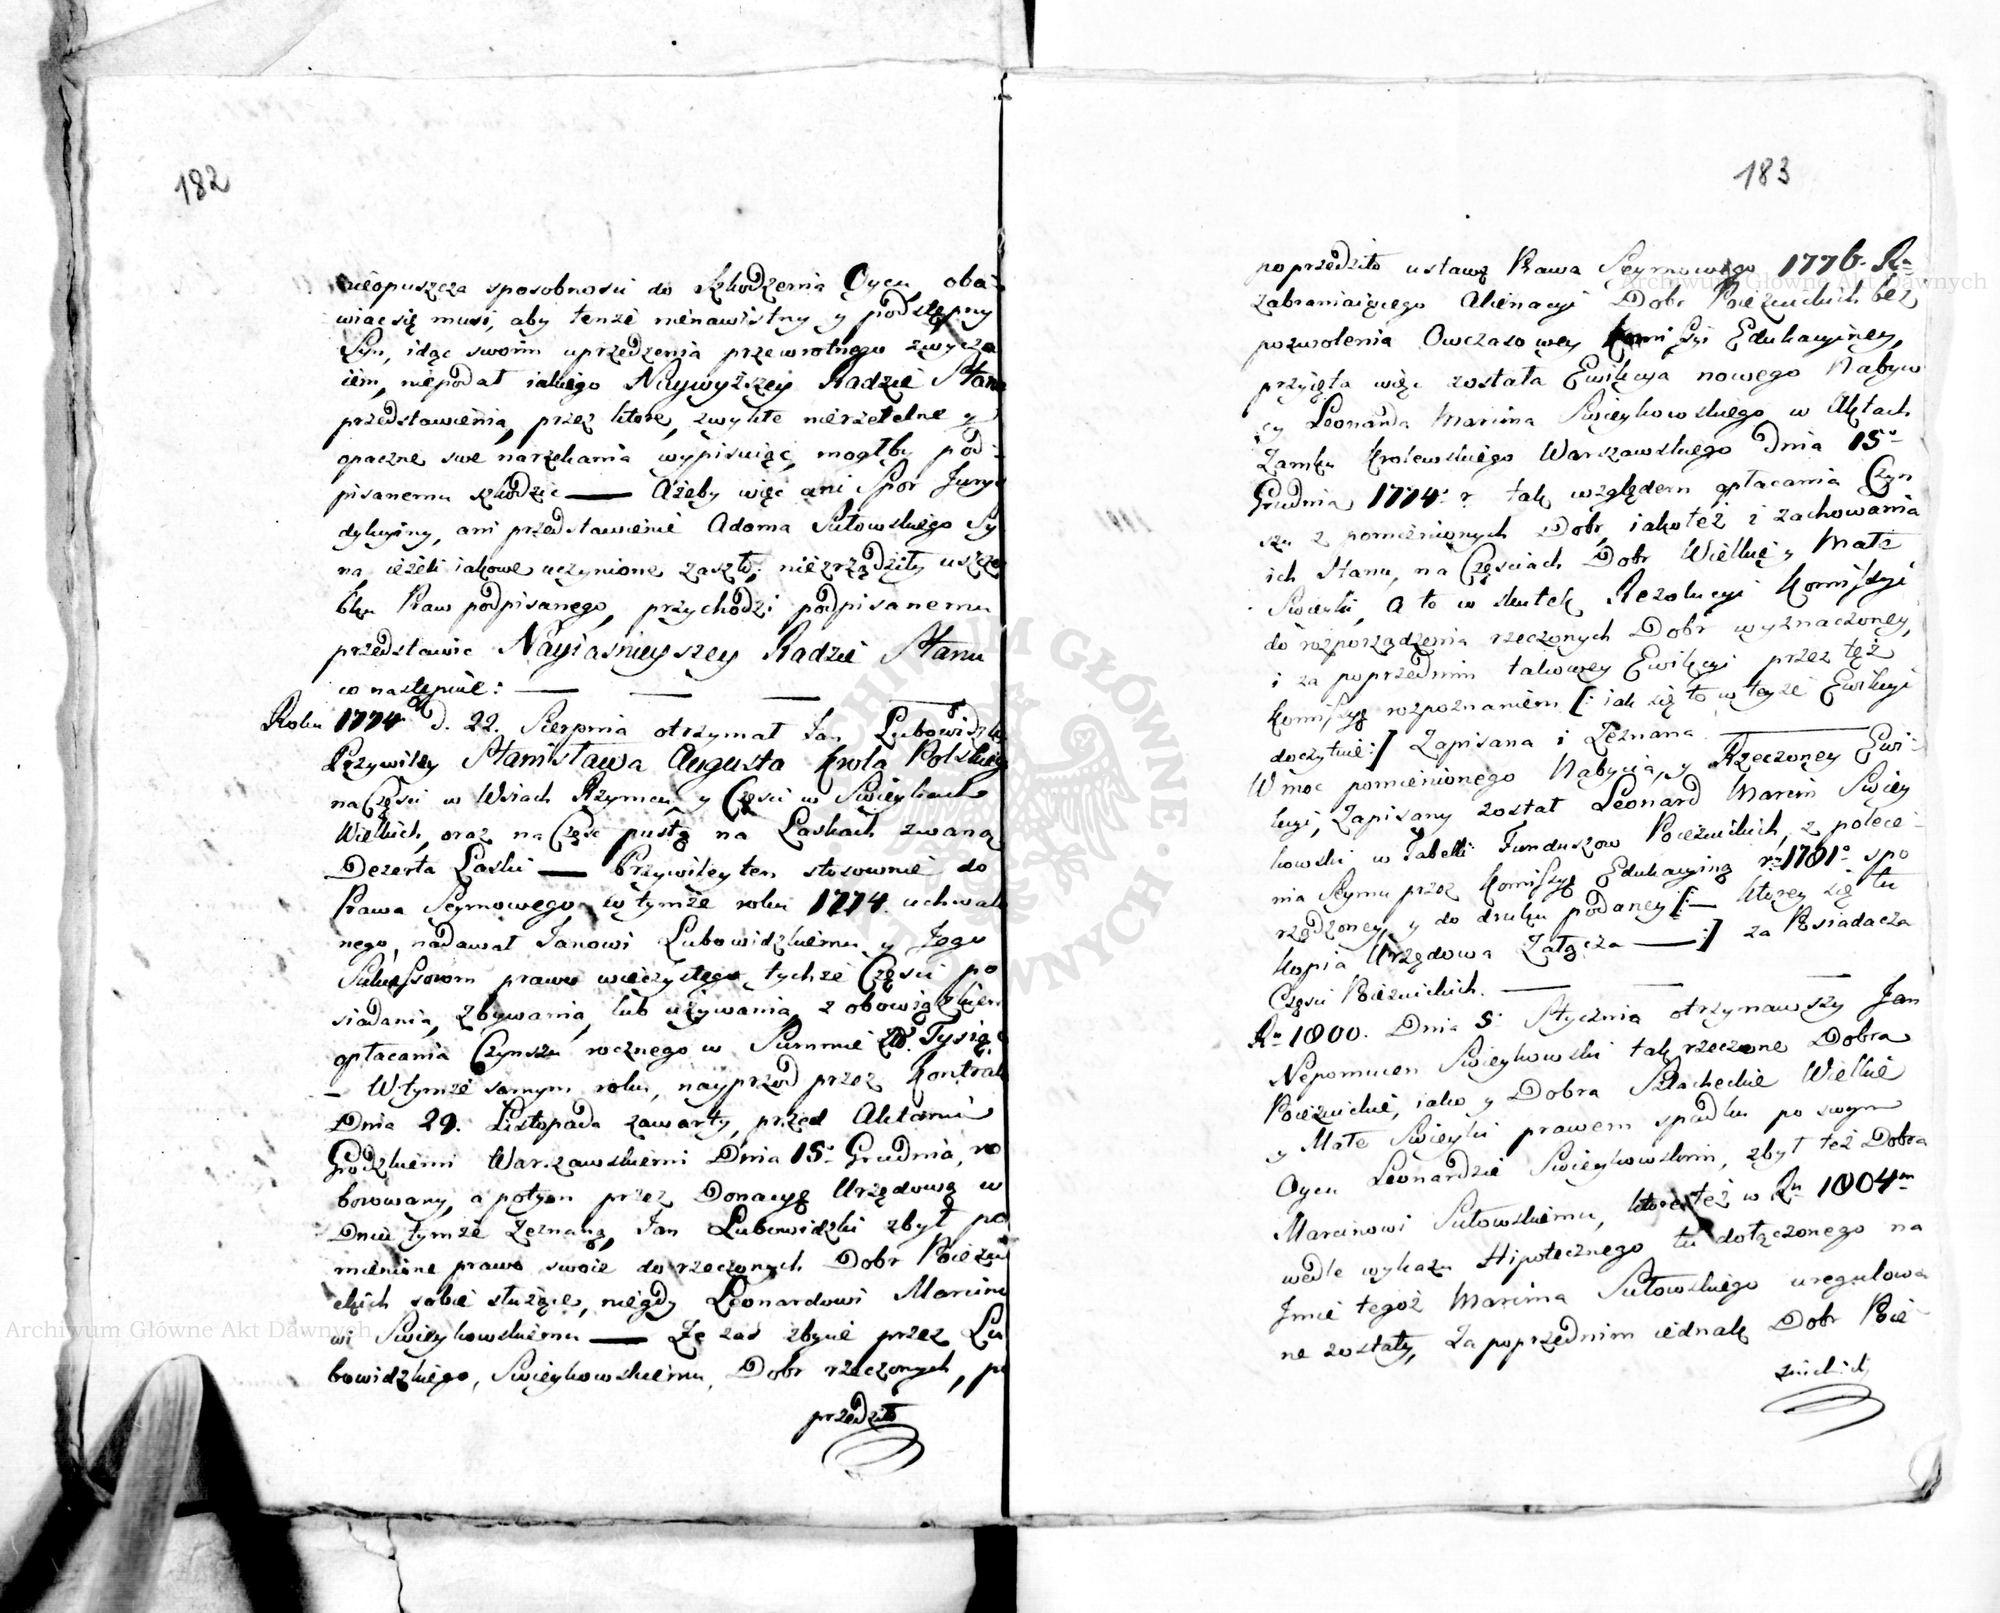 182
nieopuszcza sposobnosci do szkodzenia Oycu, oba-
wiac się musi, aby tenże nienawistny y podstępny
Syn, idąc swoim uprzedzenia przewrotnego zwycza
iem, niepodał iakiego Naywyższey Radzie Stanu
przedstawienia, przez ktore, zwykłe nierzetelne y
opaczne swe narzekania wypisuiąc, mogłby pod-
pisanemu szkodzic — Ażeby więc ani Spor Jury-
dykcyiny, ani przedstawienie Adama Sułowskiego Sy
na, ieżeli iakowe uczynione zaszło; niezrządziły uszczer
bku Praw podpisanego, przychodzi podpisanemu
przedstawic Nayiasnieyszey Radzie Stanu
co następuie: — — — —
Roku 1774 d. 22. Sierpnia otrzymał Jan Lubowidzki
Przywiley Stanisława Augusta Krola Polskiego
na Częsci w Wsiach Rzymcu, y Częsci w Swieykach
Wielkich, oraz na Częsc pustą na Laskach zwaną
Dezerta Laski — Przywiley ten stosownie do
Prawa Seymowego w tymże roku 1774. uchwalo
nego, nadawał Janowi Lubowidzkiemu y Jego
Sukcessorom prawo wieczystego tychże Częsci po
siadania, zbywania, lub używania, z obowiązkiem
opłacania Czynszu rocznego w Summie Zło. Tysiąc
– W tymże samym roku, nayprzod przez Kontrakt
Dnia 29. Listopada zawarty, przed Aktami
Grodzkiemi Warszawskiemi Dnia 15. Grudnia, ro
borowany, a potym przez Donacyą Urzędową w
Dniu tymże zeznaną, Jan Lubowidzki zbył po
mienione prawo swoie do rzeczonych Dobr Poiezui
ckich sobie służące, niegdy Leonardowi Marcino
wi Swieykowskiemu — Że zas zbycie przez Lu
bowidzkiego, Swieykowskiemu, Dobr rzeczonych, po
przedziło
183
poprzedziło ustawę Prawa Seymowego 1776. Ru
zabraniaiącego Alienacyi Dobr Poiezuickich bez
pozwolenia Owczasowey Komissyi Edukacyiney,
przyięta więc została Ewikcya nowego Nabyw
cy Leonarda Marcina Swieykowskiego w Aktach
Zamku Krolewskiego Warszawskiego Dnia 15.
Grudnia 1774. r. tak względem opłacania Czyn
szu z pomienionych Dobr, iakoteż i zachowania
ich Stanu, na Częsciach Dobr Wielkie y Małe
Swieyki, a to w skutek Rezolucyi Komissyi
do rozporządzenia rzeczonych Dobr wyznaczoney,
i za poprzednim takowey Ewikcyi przez też
Komissyą rozpoznaniem [: iak się to w teyże Ewikcyi
doczytuie:] Zapisana i Zeznana —
W moc pomienionego Nabycia, y Rzeczoney Ewi-
kcyi, Zapisany został Leonard Marcin Swiey
kowski w Tabelli Funduszow Poiezuickich, z polece-
nia Seymu przez Komissyą Edukacyiną r. 1781. spo
rządzoney, y do druku podaney [:— ktorey się tu
Kopia Urzędowa Załącza —:] za Posiadacza
Częsci Poiezuickich. — — —
Ru 1800. Dnia 5. Stycznia otrzymawszy Jan
Nepomucen Swieykowski tak rzeczone Dobra
Poiezuickie, iako y Dobra Szlacheckie Wielkie
y Małe Swieyki prawem spadku po swym
Oycu Leonardzie Swieykowskim, zbył też Dobra
Marcinowi Sułowskiemu, ktore też w Ru 1804m
wedle wykazu Hipotecznego tu dołączonego na
Jmie tegoż Marcina Sułowskiego uregulowa
ne zostały, Za poprzednim iednak Dobr Poie-
zuickich